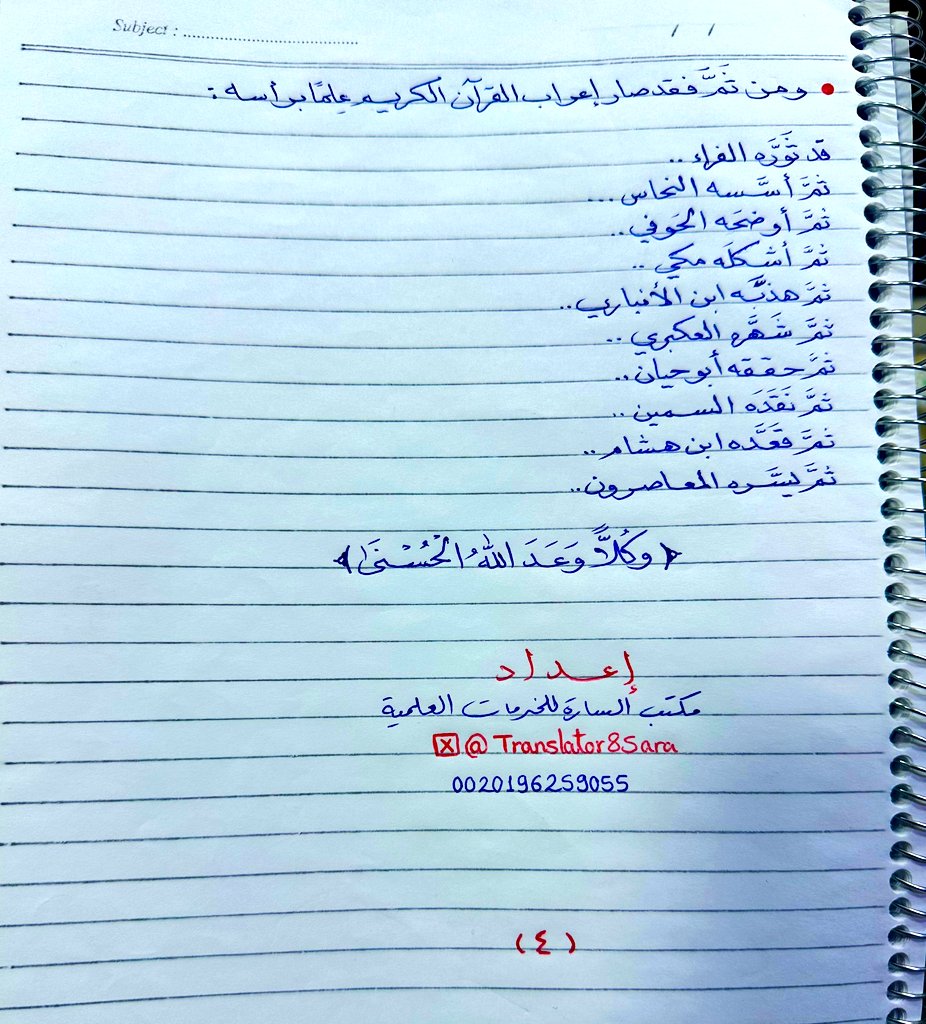 Subject : ........................................ / /
• ومن ثَمَّ فقد صار إعراب القرآن الكريم عِلمًا برأسه :
قد ثَوَّرَه الفراء ..
ثمَّ أسَّسه النحاس ...
ثمَّ أوضحَه الحَوفي ..
ثمَّ أشكلَه مكي ..
ثمَّ هذبَّه ابن الأنباري ..
ثمَّ شَهَّره العكبري ..
ثمَّ حققه أبو حيان ..
ثمَّ نَقَدَه السمين ..
ثمَّ قعَّده ابن هشام ..
ثمَّ يسَّره المعاصرون ..
﴿وَكُلاًّ وَعَدَ اللَّهُ الْحُسْنَىٰ﴾
إعداد
مكتب السارة للخدمات العلمية
X @ Translator8Sara
0020196259055
(٤)